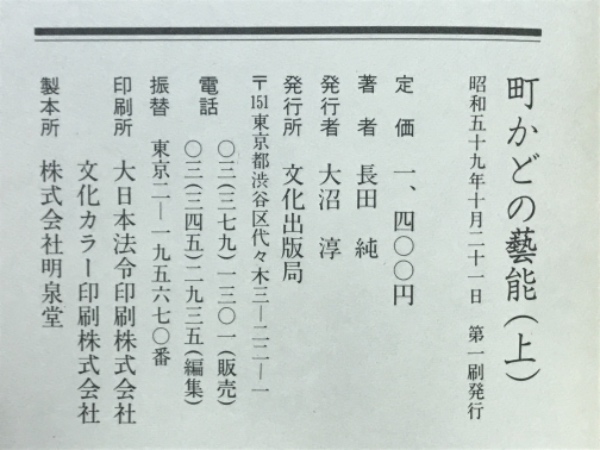 町かどの藝能(上)
昭和五十九年十月二十一日　第一刷発行
定価　一、四〇〇円
著者　長田　純
発行者　大沼　淳
発行所　文化出版局
〒151東京都渋谷区代々木三―二二―一
電話　〇三(三七九)一三〇一(販売)
〇三(三四五)二九三五(編集)
振替　東京二―一九五六七〇番
印刷所　大日本法令印刷株式会社
文化カラー印刷株式会社
製本所　株式会社明泉堂